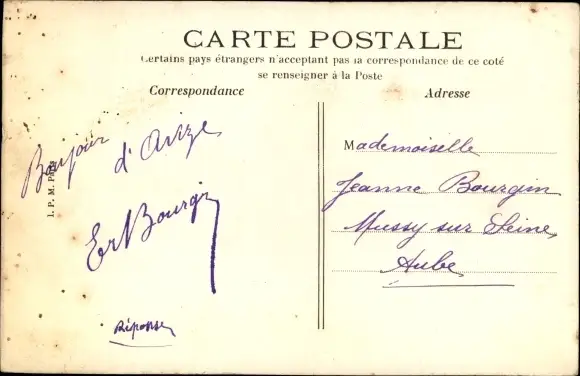 CARTE POSTALE
Certains pays étrangers n'acceptant pas la correspondance de ce coté
se renseigner à la Poste
Correspondance
Adresse
Bonjour d'Avize
Bourgin
Réponse
I. P. M. Paris
Mademoiselle
Jeanne Bourgin
Mussy sur Seine,
Aube